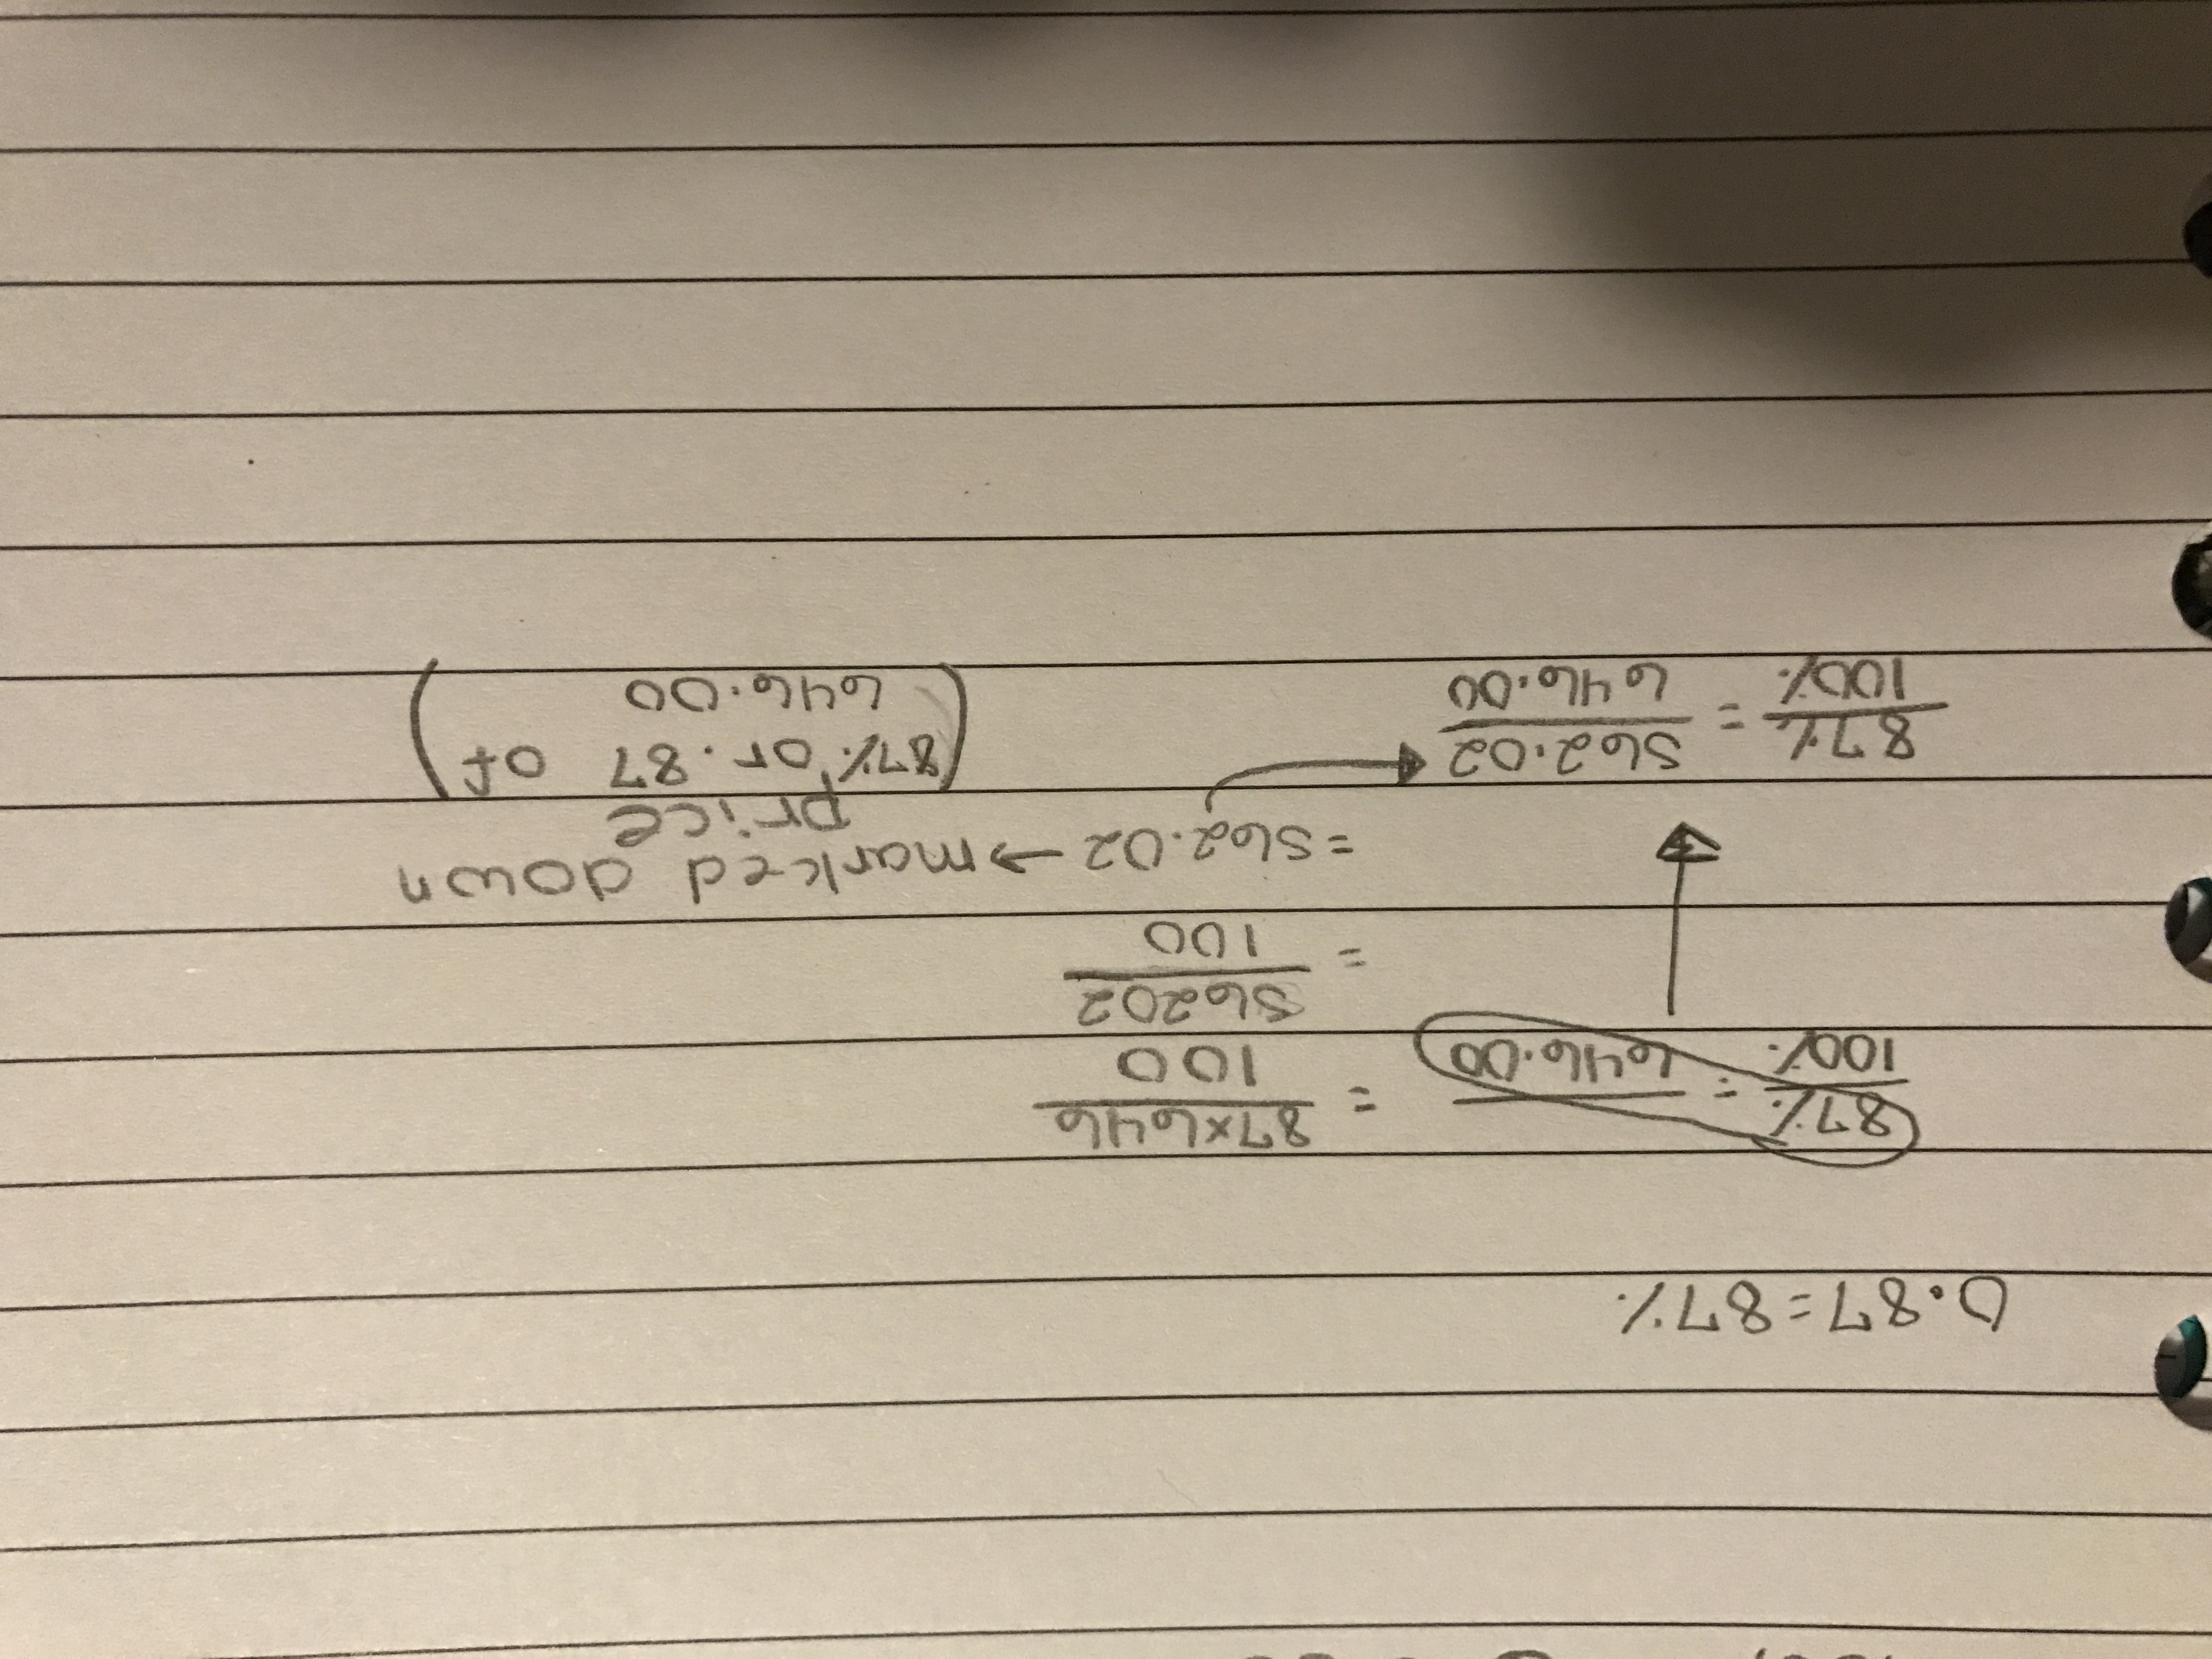 0.87=87%
87%/100% = /646.00 = 87×646/100
= 56202/100
=562.02 → marked down
price
87%/100% = 562.02/646.00 (87% or .87 of
646.00)